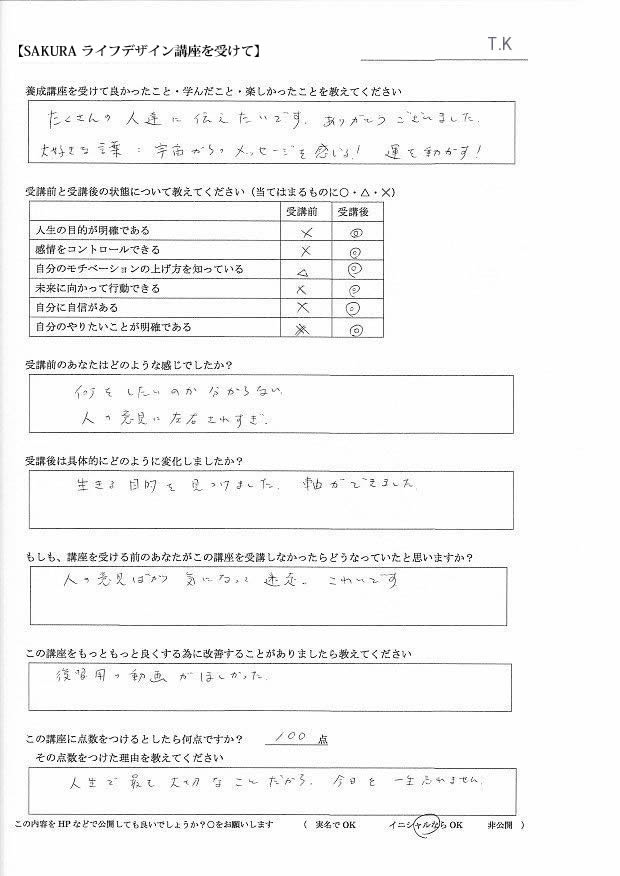 T.K
【SAKURA ライフデザイン講座を受けて】
養成講座を受けて良かったこと・学んだこと・楽しかったことを教えてください
たくさんの人達に伝えたいです。ありがとうございました。
大好きな言葉:宇宙からのメッセージを感じる! 運を動かす!
受講前と受講後の状態について教えてください(当てはまるものに○・△・×)
受講前 受講後
人生の目的が明確である × ◎
感情をコントロールできる × ◎
自分のモチベーションの上げ方を知っている △ ◎
未来に向かって行動できる × ◎
自分に自信がある × ◎
自分のやりたいことが明確である × ◎
受講前のあなたはどのような感じでしたか?
何をしたいのか分からない。
人の意見に左右されすぎ。
受講後は具体的にどのように変化しましたか?
生きる目的を見つけました。軸ができました
もしも、講座を受ける前のあなたがこの講座を受講しなかったらどうなっていたと思いますか?
人の意見ばかり気になって迷走。こわいです
この講座をもっともっと良くする為に改善することがありましたら教えてください
復習用の動画がほしかった。
この講座に点数をつけるとしたら何点ですか? 100 点
その点数をつけた理由を教えてください
人生で最も大切なことだから。今日を一生忘れません。
この内容を HP などで公開しても良いでしょうか?○をお願いします ( 実名で OK イニシャルなら OK 非公開 )